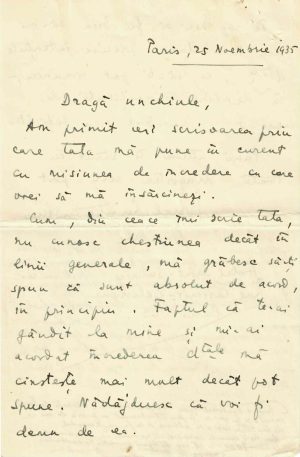 Paris, 25 Noembrie 1935
Dragă unchiule,
Am primit ieri scrisoarea prin
care tata mă pune în curent
cu misiunea de încredere cu care
vrei să mă însărcinezi.
Cum, din ceace îmi scrie tata,
nu cunosc chestiunea decât în
linii generale, mă grăbesc să-ți
spun că sunt absolut de acord,
în principiu. Faptul că te-ai
gândit la mine și mi-ai
acordat încrederea dtale mă
cinstește mai mult decât pot
spune. Nădăjduesc că voi fi
demn de ea.